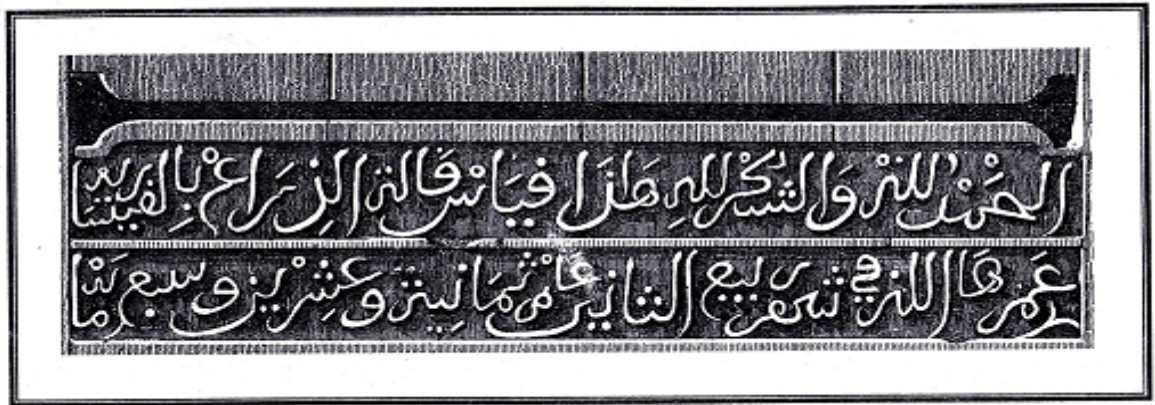 الحمد لله والشكر لله هاذا قياس قالة الذراع بالقيسارية
عمرها الله في شهر ربيع الثاني عام ثمانية وعشرين وسبع مائة